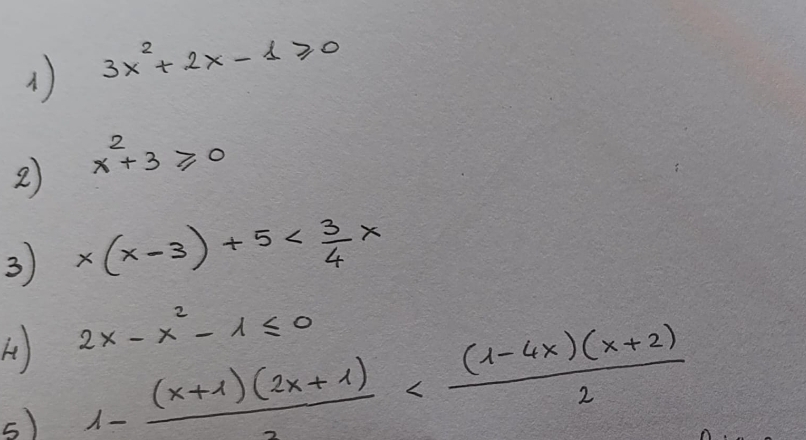 1) 3x² + 2x - 1 ⩾ 0
2) x² + 3 ⩾ 0
3) x(x-3) + 5 < 3/4 x
4) 2x - x² - 1 ≤ 0
5) 1 - (x+1)(2x+1)/ < (1-4x)(x+2)/2